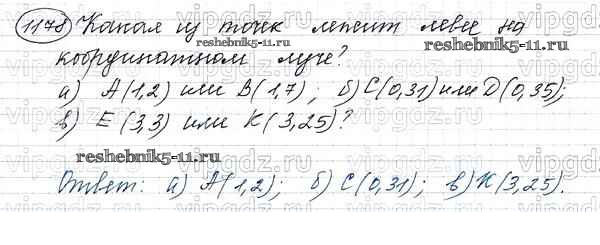 1178) Какая из точек лежит левее на
координатном луче?
а) А(1,2) или В(1,7); б) С(0,31) или D(0,35);
в) Е(3,3) или К(3,25)?
reshebnik5-11.ru
reshebnik5-11.ru
reshebnik5-11.ru
Ответ: а) А(1,2); б) С(0,31); в) К(3,25).